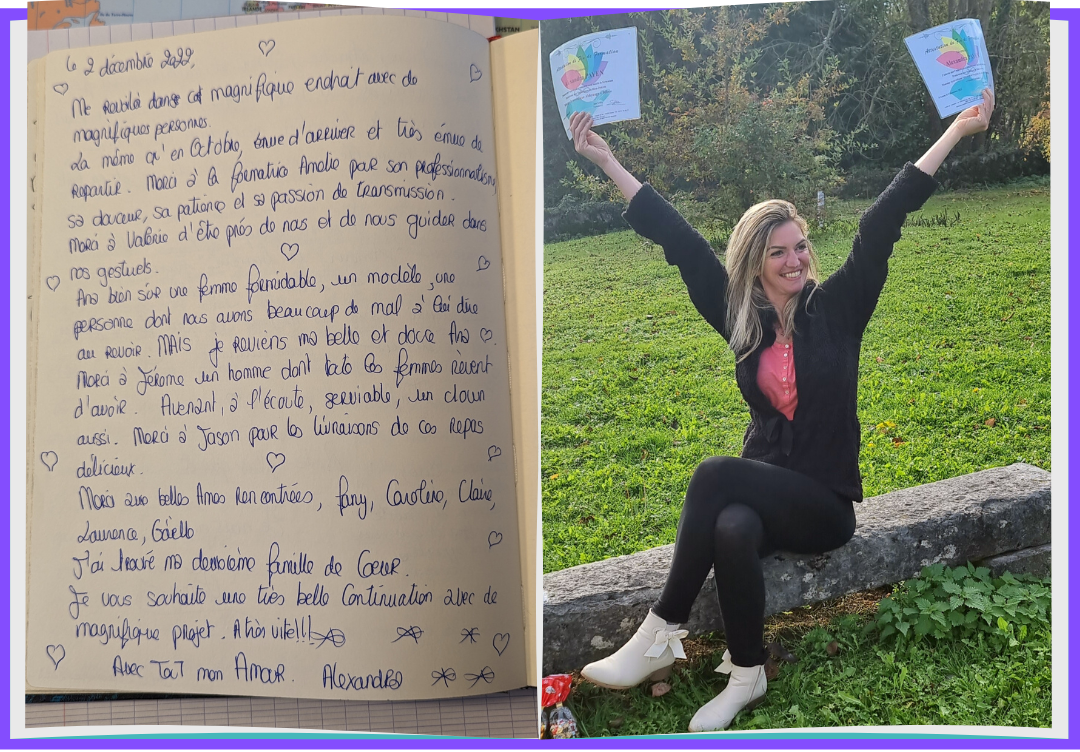 Le 2 décembre 2022,
Me revoilà dans cet magnifique endroit avec de
magnifiques personnes.
La même qu'en Octobre, émue d'arriver et très émue de
Repartir. Merci à la formatrice Amélie pour son professionnalisme
sa douceur, sa patience et sa passion de transmission.
Merci à Valérie d'être près de nous et de nous guider dans
nos gestuels.
Ana bien sûr une femme formidable, un modèle, une
personne dont nous avons beaucoup de mal à lui dire
au revoir. MAIS je reviens ma belle et douce Ana
Merci à Jérome un homme dont toute les femmes rêvent
d'avoir. Avenant, à l'écoute, serviable, un clown
aussi. Merci à Jason pour les livraisons de ces Repas
délicieux.
Merci aux belles Ames Rencontrées, Fany, Caroline, Claire,
Laurence, Gaëlle
J'ai trouvé ma deuxième famille de Coeur.
Je vous souhaite une très belle Continuation avec de
magnifique projet. A très vite!!!
Avec TouT mon Amour. Alexandra
Attestation de Formation
Attestation de
Alexandra